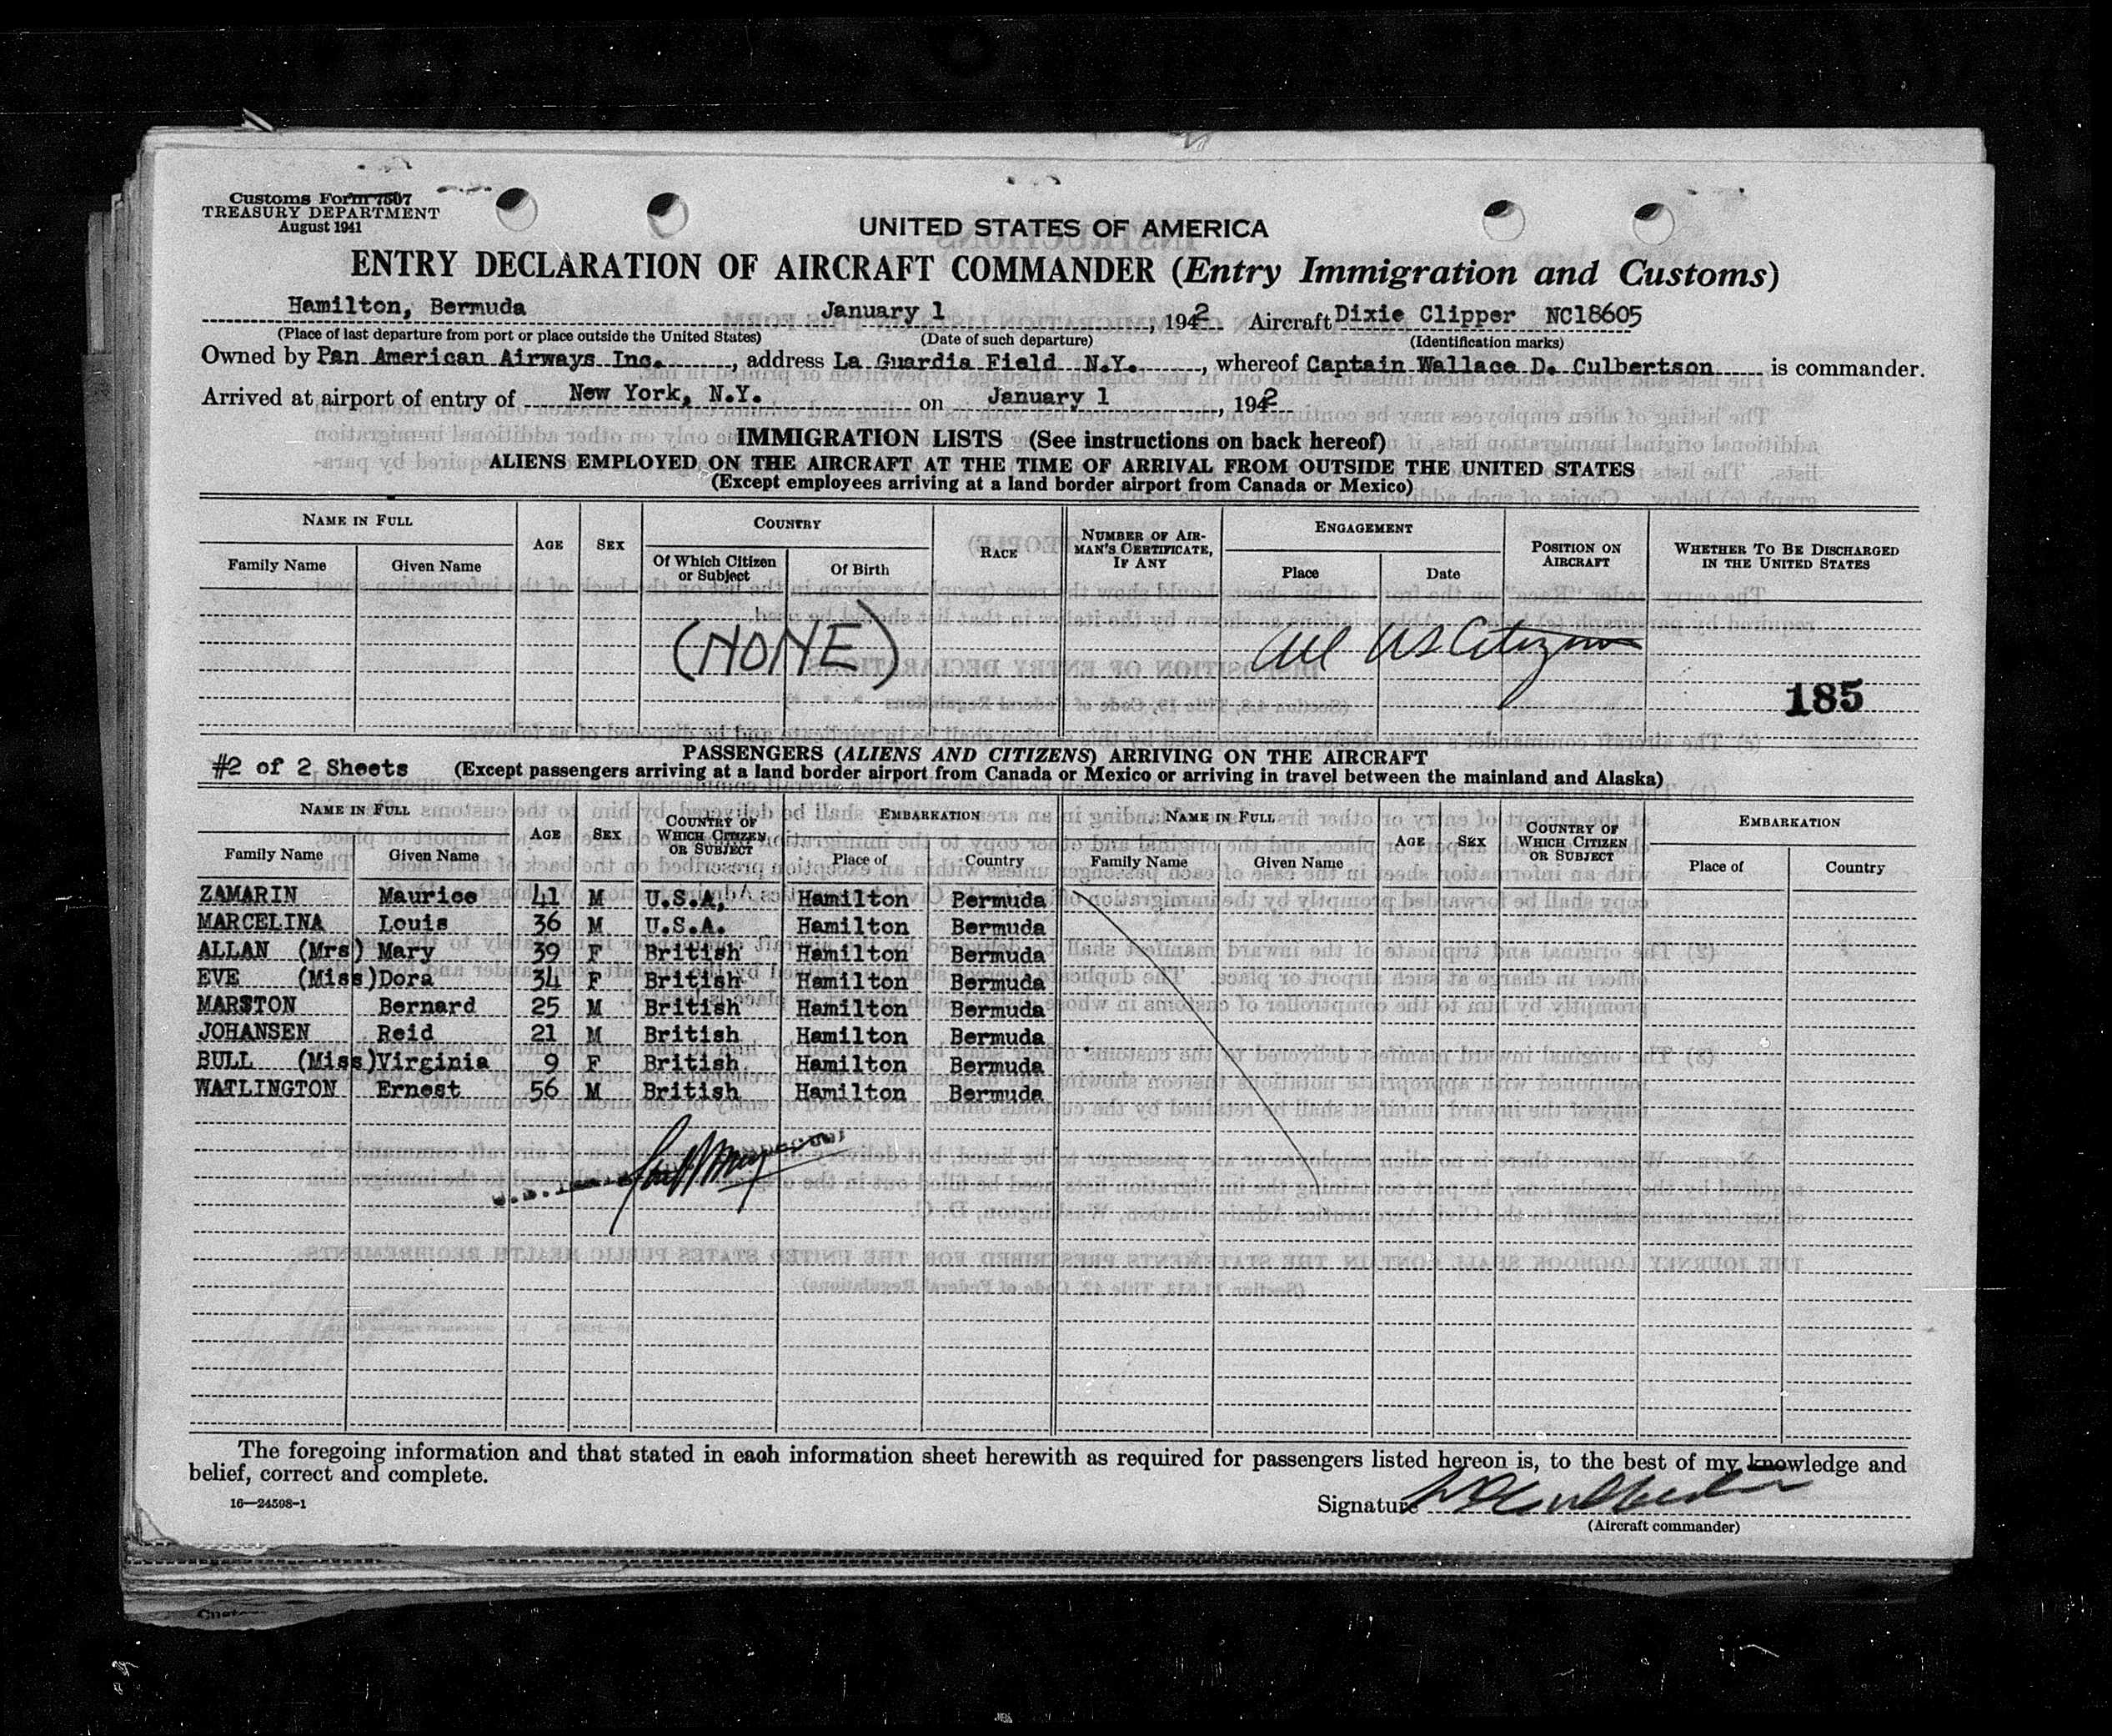 Customs Form 7507
TREASURY DEPARTMENT
August 1941
UNITED STATES OF AMERICA
ENTRY DECLARATION OF AIRCRAFT COMMANDER (Entry Immigration and Customs)
Hamilton, Bermuda January 1, 1942 Aircraft Dixie Clipper NC18605
(Place of last departure from port or place outside the United States) (Date of such departure) (Identification marks)
Owned by Pan American Airways Inc., address La Guardia Field N.Y., whereof Captain Wallace D. Culbertson is commander.
Arrived at airport of entry of New York, N.Y. on January 1, 1942
IMMIGRATION LISTS (See instructions on back hereof)
ALIENS EMPLOYED ON THE AIRCRAFT AT THE TIME OF ARRIVAL FROM OUTSIDE THE UNITED STATES
(Except employees arriving at a land border airport from Canada or Mexico)
NAME IN FULL AGE SEX COUNTRY RACE NUMBER OF AIRMAN'S CERTIFICATE, IF ANY ENGAGEMENT POSITION ON AIRCRAFT WHETHER TO BE DISCHARGED IN THE UNITED STATES
Family Name Given Name Of Which Citizen or Subject Of Birth Place Date
(NONE) All US Citizens
185
PASSENGERS (ALIENS AND CITIZENS) ARRIVING ON THE AIRCRAFT
#2 of 2 Sheets (Except passengers arriving at a land border airport from Canada or Mexico or arriving in travel between the mainland and Alaska)
NAME IN FULL AGE SEX COUNTRY OF WHICH CITIZEN OR SUBJECT EMBARKATION NAME IN FULL AGE SEX COUNTRY OF WHICH CITIZEN OR SUBJECT EMBARKATION
Family Name Given Name Place of Country Family Name Given Name Place of Country
ZAMARIN Maurice 41 M U.S.A. Hamilton Bermuda
MARCELINA Louis 36 M U.S.A. Hamilton Bermuda
ALLAN (Mrs) Mary 39 F British Hamilton Bermuda
EVE (Miss) Dora 34 F British Hamilton Bermuda
MARSTON Bernard 25 M British Hamilton Bermuda
JOHANSEN Reid 21 M British Hamilton Bermuda
BULL (Miss) Virginia 9 F British Hamilton Bermuda
WATLINGTON Ernest 56 M British Hamilton Bermuda
The foregoing information and that stated in each information sheet herewith as required for passengers listed hereon is, to the best of my knowledge and
belief, correct and complete.
16—24598-1
Signature WD Culbertson
(Aircraft commander)